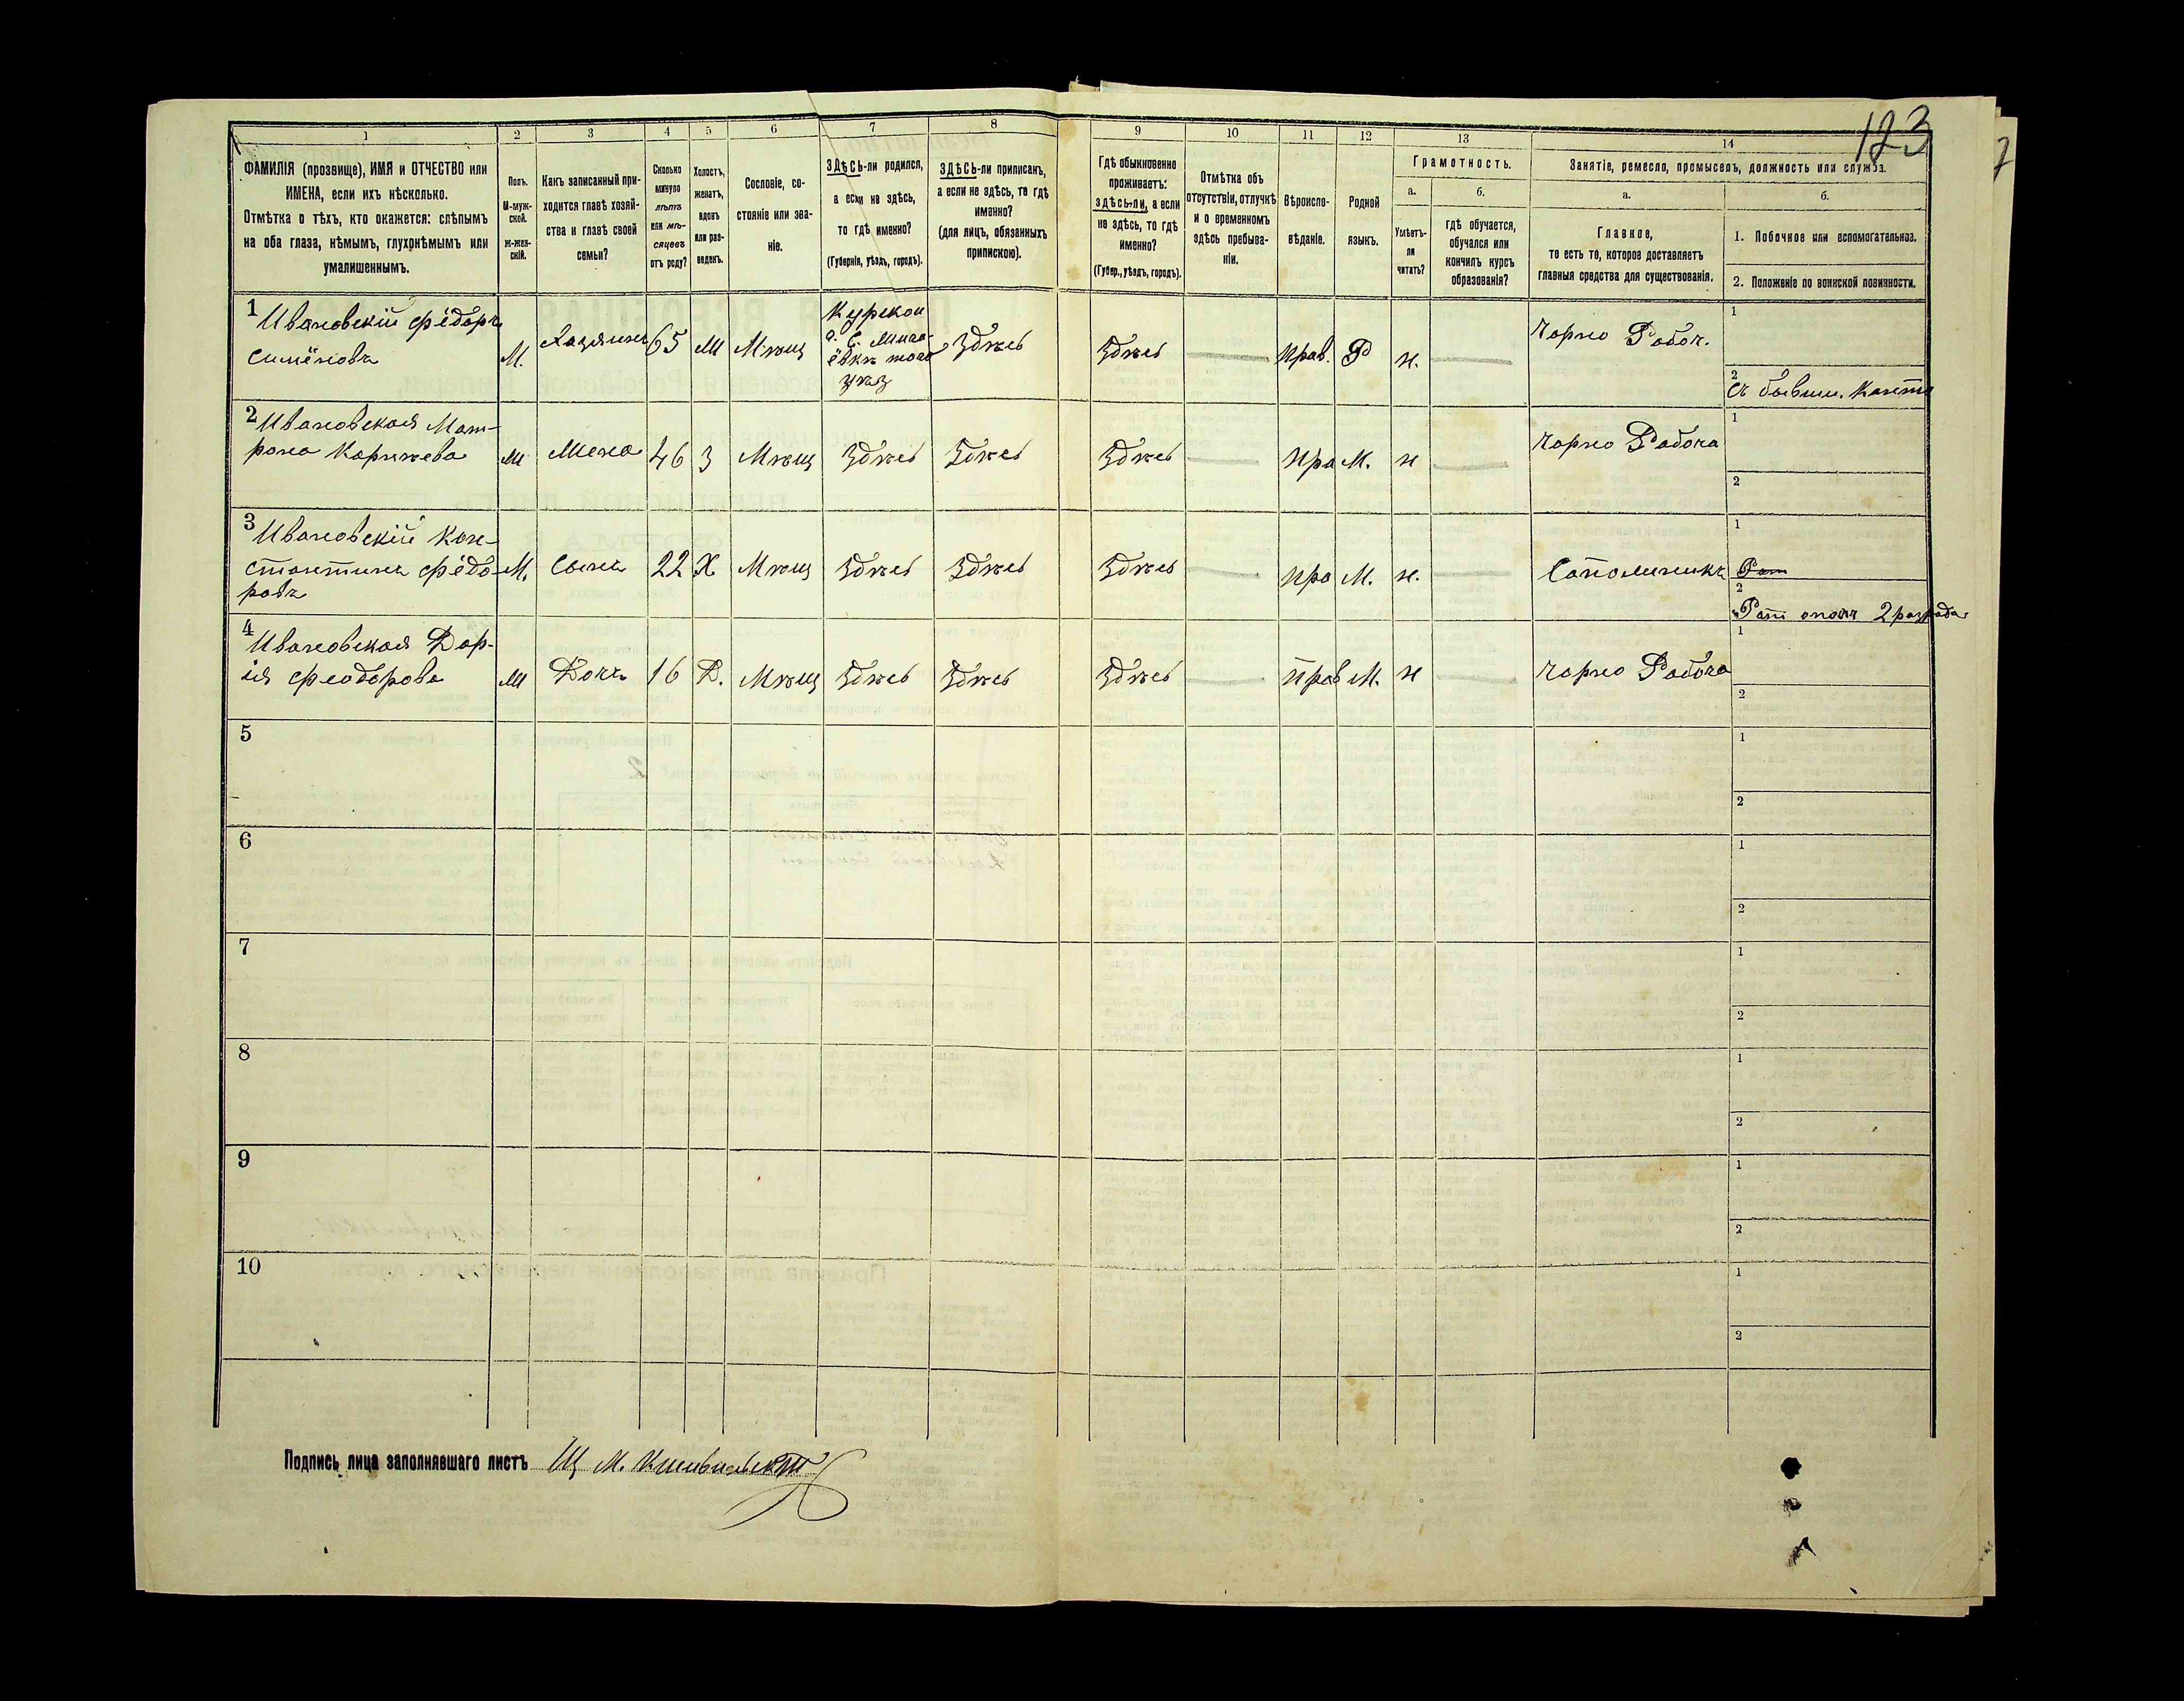 123
1 2 3 4 5 6 7 8 9 10 11 12 13 14
ФАМИЛІЯ (прозвище), ИМЯ и ОТЧЕСТВО или
ИМЕНА, если ихъ нѣсколько.
Отмѣтка о тѣхъ, кто окажется: слѣпымъ
на оба глаза, нѣмымъ, глухонѣмымъ или
умалишеннымъ.
Полъ.
М-муж-
ской.
ж-жен-
скій.
Какъ записанный при-
ходится главѣ хозяй-
ства и главѣ своей
семьи?
Сколько
минуло
лѣтъ
или мѣ-
сяцевъ
отъ роду?
Холостъ,
женатъ,
вдовъ
или раз-
веденъ.
Сословіе, со-
стояніе или зва-
ніе.
ЗДѢСЬ-ли родился,
а если не здѣсь,
то гдѣ именно?
(Губернія, уѣздъ, городъ).
ЗДѢСЬ-ли приписанъ,
а если не здѣсь, то гдѣ
именно?
(для лицъ, обязанныхъ
припискою).
Гдѣ обыкновенно
проживаетъ:
здѣсь-ли, а если
не здѣсь, то гдѣ
именно?
(Губер., уѣздъ, городъ).
Отмѣтка объ
отсутствіи, отлучкѣ
и о временномъ
здѣсь пребыва-
ніи.
Вѣроиспо-
вѣданіе.
Родной
языкъ.
Грамотность.
а.
Умѣетъ-
ли
читать?
б.
гдѣ обучается,
обучался или
кончилъ курсъ
образованія?
Занятіе, ремесло, промыселъ, должность или служба.
а.
Главное,
то есть то, которое доставляетъ
главныя средства для существованія.
б.
1. Побочное или вспомогательное.
2. Положеніе по воинской повинности.
1 Ивановскій Фёдоръ
Симёновъ
М. Хазяинъ 65 М Мѣщ
Курской
того
Здѣсь Здѣсь Прав. Р н. Чорно Рабоч.
1
2
2 Ивановская Мат-
рона Корнѣева
М Жена 46 З Мѣщ Здѣсь Здѣсь Здѣсь Пра М. н Чорно Рабоча
1
2
3 Ивановскій Кон-
стантинъ Фёдо-
ровъ
М. Сынъ 22 Х Мѣщ Здѣсь Здѣсь Здѣсь Пра М. н. Сапожникъ
1 Рат
2 Рат опол 2 разряда
4 Ивановская Дар-
ія Феодорова
М Дочь 16 Д. Мѣщ Здѣсь Здѣсь Здѣсь Прав М. н Чорно Рабоча
1
2
5
1
2
6
1
2
7
1
2
8
1
2
9
1
2
10
1
2
Подпись лица заполнявшаго листъ